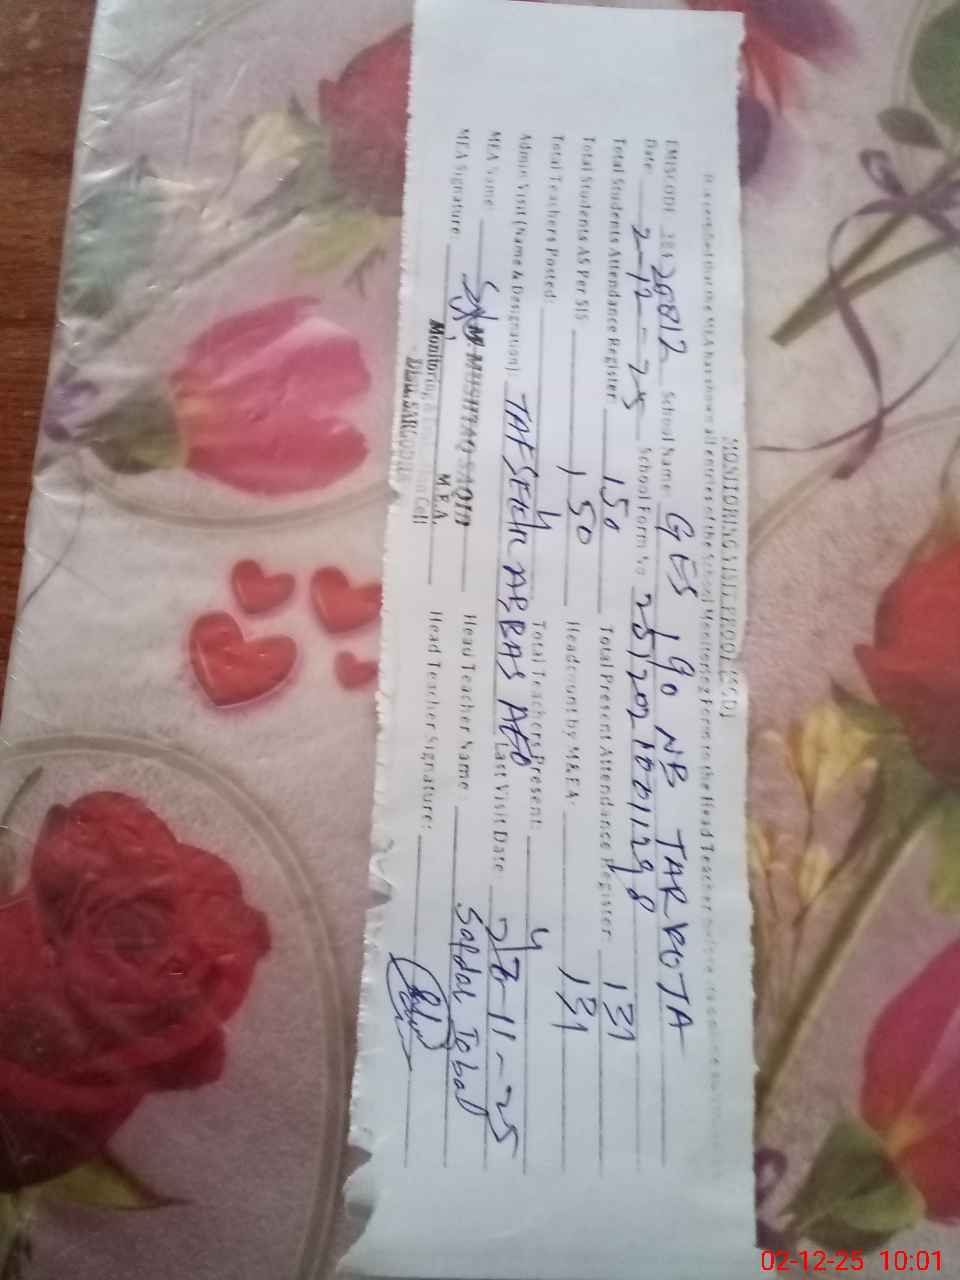 MONITORING VISIT PROOF (SSD)
It is certified that the MEA has shown all entries of the School Monitoring Form to the Head Teacher before
EMISCODE 38320812 School Name GES 190 NB TARKOTA
Date 2-12-25 School Form No
Total Students Attendance Register: 150 Total Present Attendance Register: 131
Total Students AS Per SIS 150 Headcount by M&EA: 131
Total Teachers Posted: 4 Total Teachers Present: 4
Admin Visit (Name & Designation) ABBAS AEO Last Visit Date 28-11-25
MEA Name: M. MUSHTAQ SAQIB Head Teacher Name Safdar Iqbal
M.E.A
MEA Signature: Head Teacher Signature:
Monitoring & Cell
Distt. SARGODHA
02-12-25 10:01